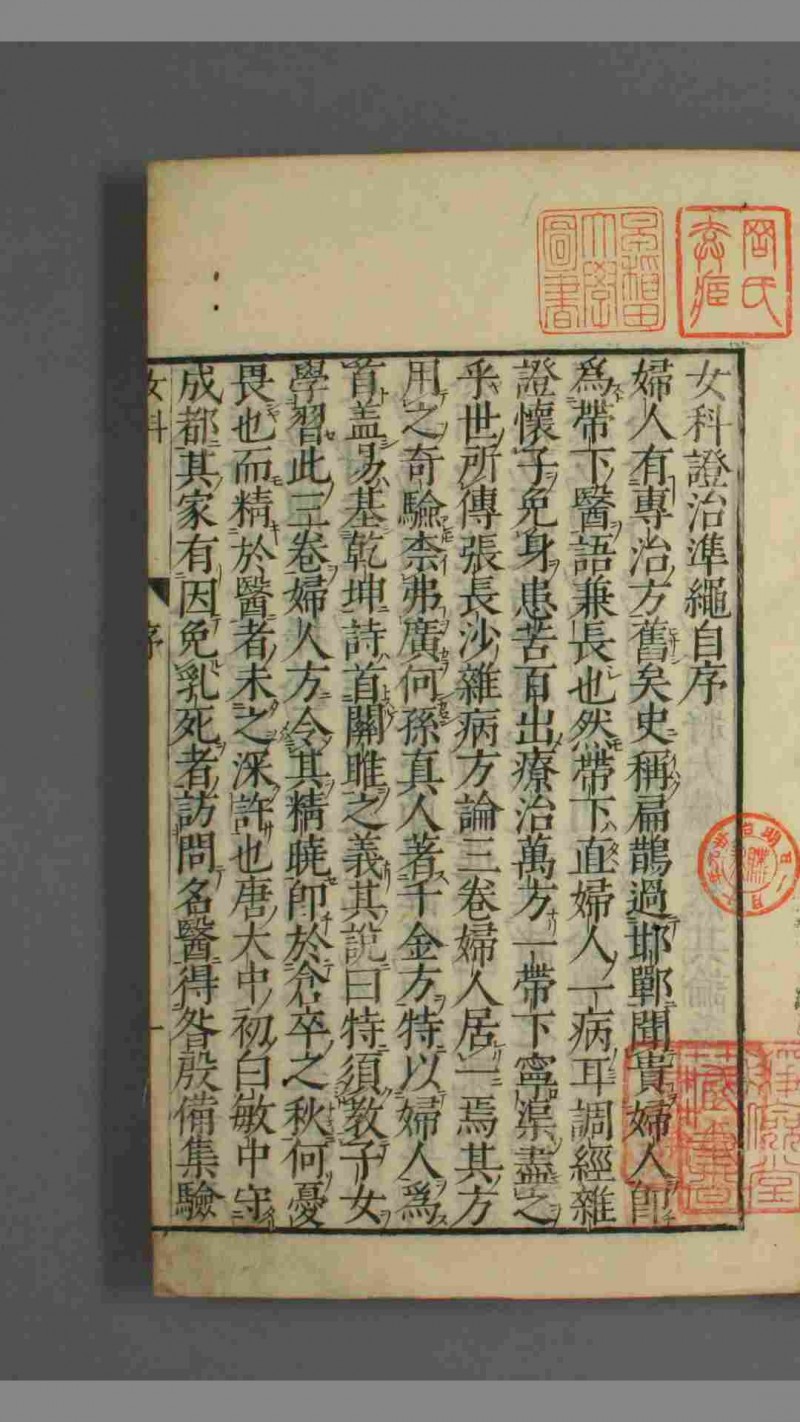 女科證治準繩自序
婦人有專治方舊矣史稱扁鵲過邯鄲聞貴婦人卽
為帶下醫語兼長也然帶下直婦人一病耳調經雜
證懷子免身患苦百出療治萬方一帶下寧渠盡之
乎世所傳張長沙雜病方論三卷婦人居一焉其方
用之奇驗柰弗廣何孫真人著千金方特以婦人爲
首盖易基乾坤詩首關雎之義其說曰特須教子女
學習此三卷婦人方令其精曉卽於倉卒之秋何憂
畏也而精於醫者未之深許也唐大中初白敏中守
成都其家有因免乳死者訪問名醫得昝殷備集驗
女科
序
一
岡氏
圖書
藏書